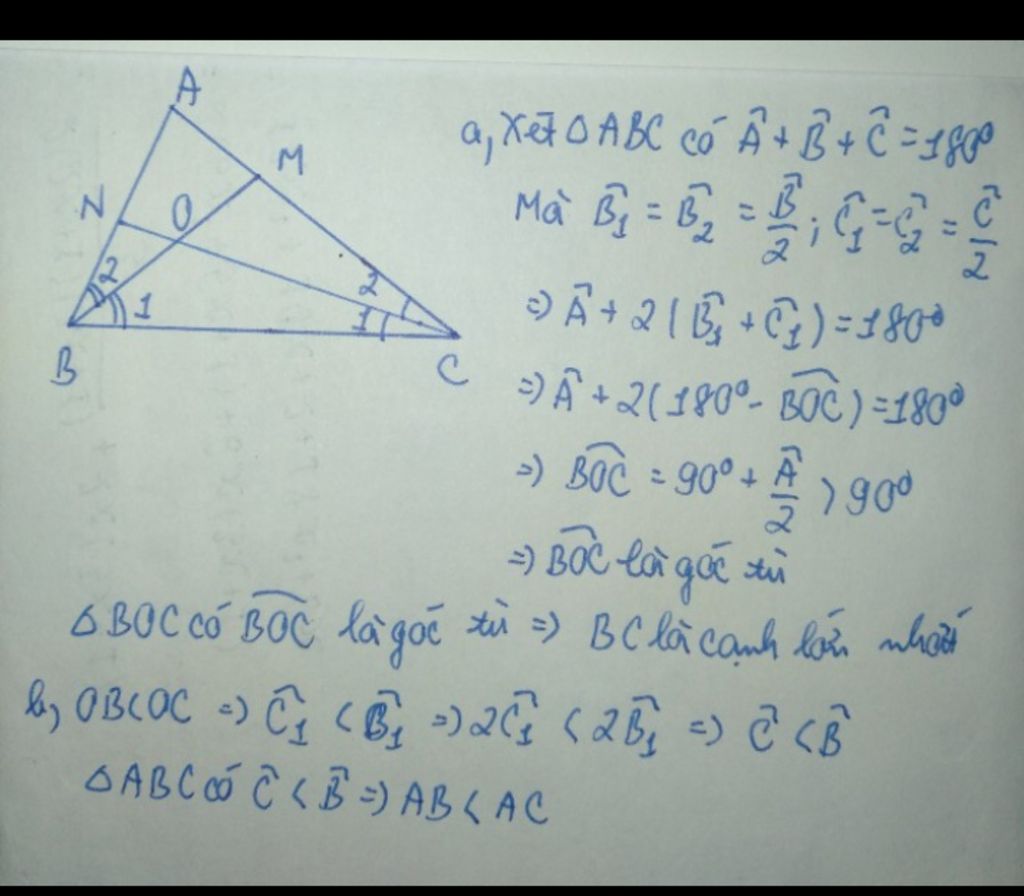 A
M
N
O
2
1
2
1
B
C
a, Xét △ABC có Â + B̂ + Ĉ = 180⁰
Mà B̂₁ = B̂₂ = B̂/2 ; Ĉ₁ = Ĉ₂ = Ĉ/2
=) Â + 2(B̂₁ + Ĉ₁) = 180⁰
=) Â + 2(180⁰ - B͡OC) = 180⁰
=) B͡OC = 90⁰ + Â/2 > 90⁰
=) B͡OC là góc tù
△BOC có B͡OC là góc tù =) BC là cạnh lớn nhất
b, OB < OC =) Ĉ₁ < B̂₁ =) 2Ĉ₁ < 2B̂₁ =) Ĉ < B̂
△ABC có Ĉ < B̂ =) AB < AC